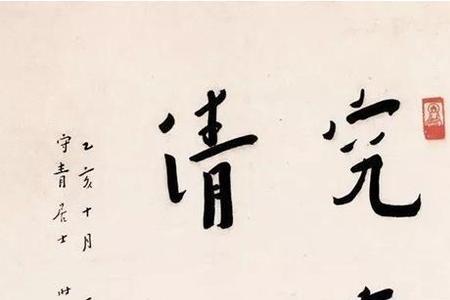 究
清
乙亥十月
守青居士